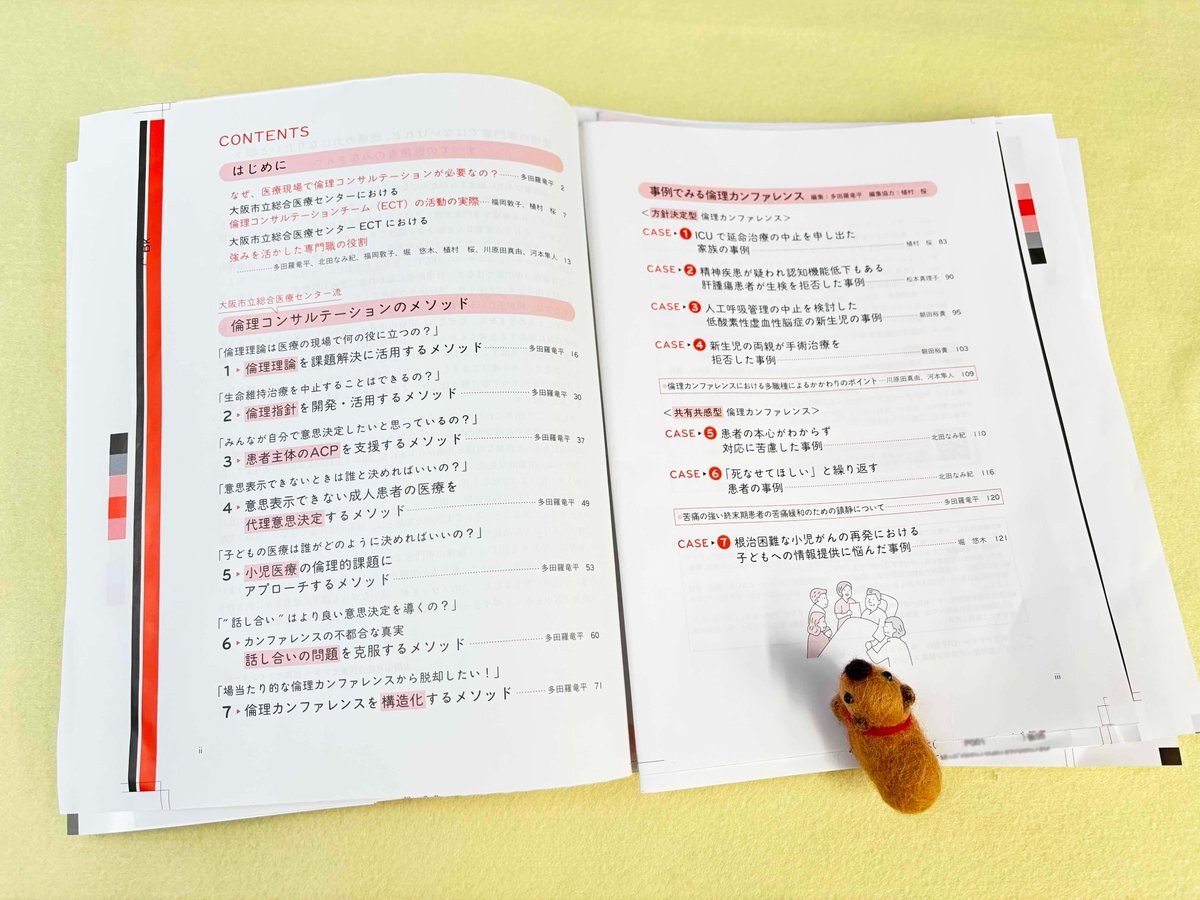 CONTENTS
はじめに
なぜ、医療現場で倫理コンサルテーションが必要なの?……多田羅竜平 2
大阪市立総合医療センターにおける
倫理コンサルテーションチーム(ECT)の活動の実際…福岡敦子、植村 桜 7
大阪市立総合医療センター ECT における
強みを活かした専門職の役割
……………多田羅竜平、北田なみ紀、福岡敦子、堀 悠木、植村 桜、川原田真由、河本隼人 13
大阪市立総合医療センター流
倫理コンサルテーションのメソッド
「倫理理論は医療の現場で何の役に立つの?」
1▸倫理理論を課題解決に活用するメソッド……………多田羅竜平 16
「生命維持治療を中止することはできるの?」
2▸倫理指針を開発・活用するメソッド……………多田羅竜平 30
「みんなが自分で意思決定したいと思っているの?」
3▸患者主体のACPを支援するメソッド……………多田羅竜平 37
「意思表示できないときは誰と決めればいいの?」
4▸意思表示できない成人患者の医療を
代理意思決定するメソッド……………多田羅竜平 49
「子どもの医療は誰がどのように決めればいいの?」
5▸小児医療の倫理的課題に
アプローチするメソッド……………多田羅竜平 53
「“話し合い”はより良い意思決定を導くの?」
6▸カンファレンスの不都合な真実
話し合いの問題を克服するメソッド……………多田羅竜平 60
「場当たり的な倫理カンファレンスから脱却したい!」
7▸倫理カンファレンスを構造化するメソッド………多田羅竜平 71
ii
事例でみる倫理カンファレンス 編集:多田羅竜平 編集協力:植村 桜
<方針決定型 倫理カンファレンス>
CASE▸1 ICUで延命治療の中止を申し出た
家族の事例……………植村 桜 83
CASE▸2 精神疾患が疑われ認知機能低下もある
肝腫瘍患者が生検を拒否した事例……………松本真理子 90
CASE▸3 人工呼吸管理の中止を検討した
低酸素性虚血性脳症の新生児の事例……………朝田裕貴 95
CASE▸4 新生児の両親が手術治療を
拒否した事例……………朝田裕貴 103
倫理カンファレンスにおける多職種によるかかわりのポイント…川原田真由、河本隼人 109
<共有共感型 倫理カンファレンス>
CASE▸5 患者の本心がわからず
対応に苦慮した事例……………北田なみ紀 110
CASE▸6 「死なせてほしい」と繰り返す
患者の事例……………北田なみ紀 116
苦痛の強い終末期患者の苦痛緩和のための鎮静について……………多田羅竜平 120
CASE▸7 根治困難な小児がんの再発における
子どもへの情報提供に悩んだ事例……………堀 悠木 121
iii